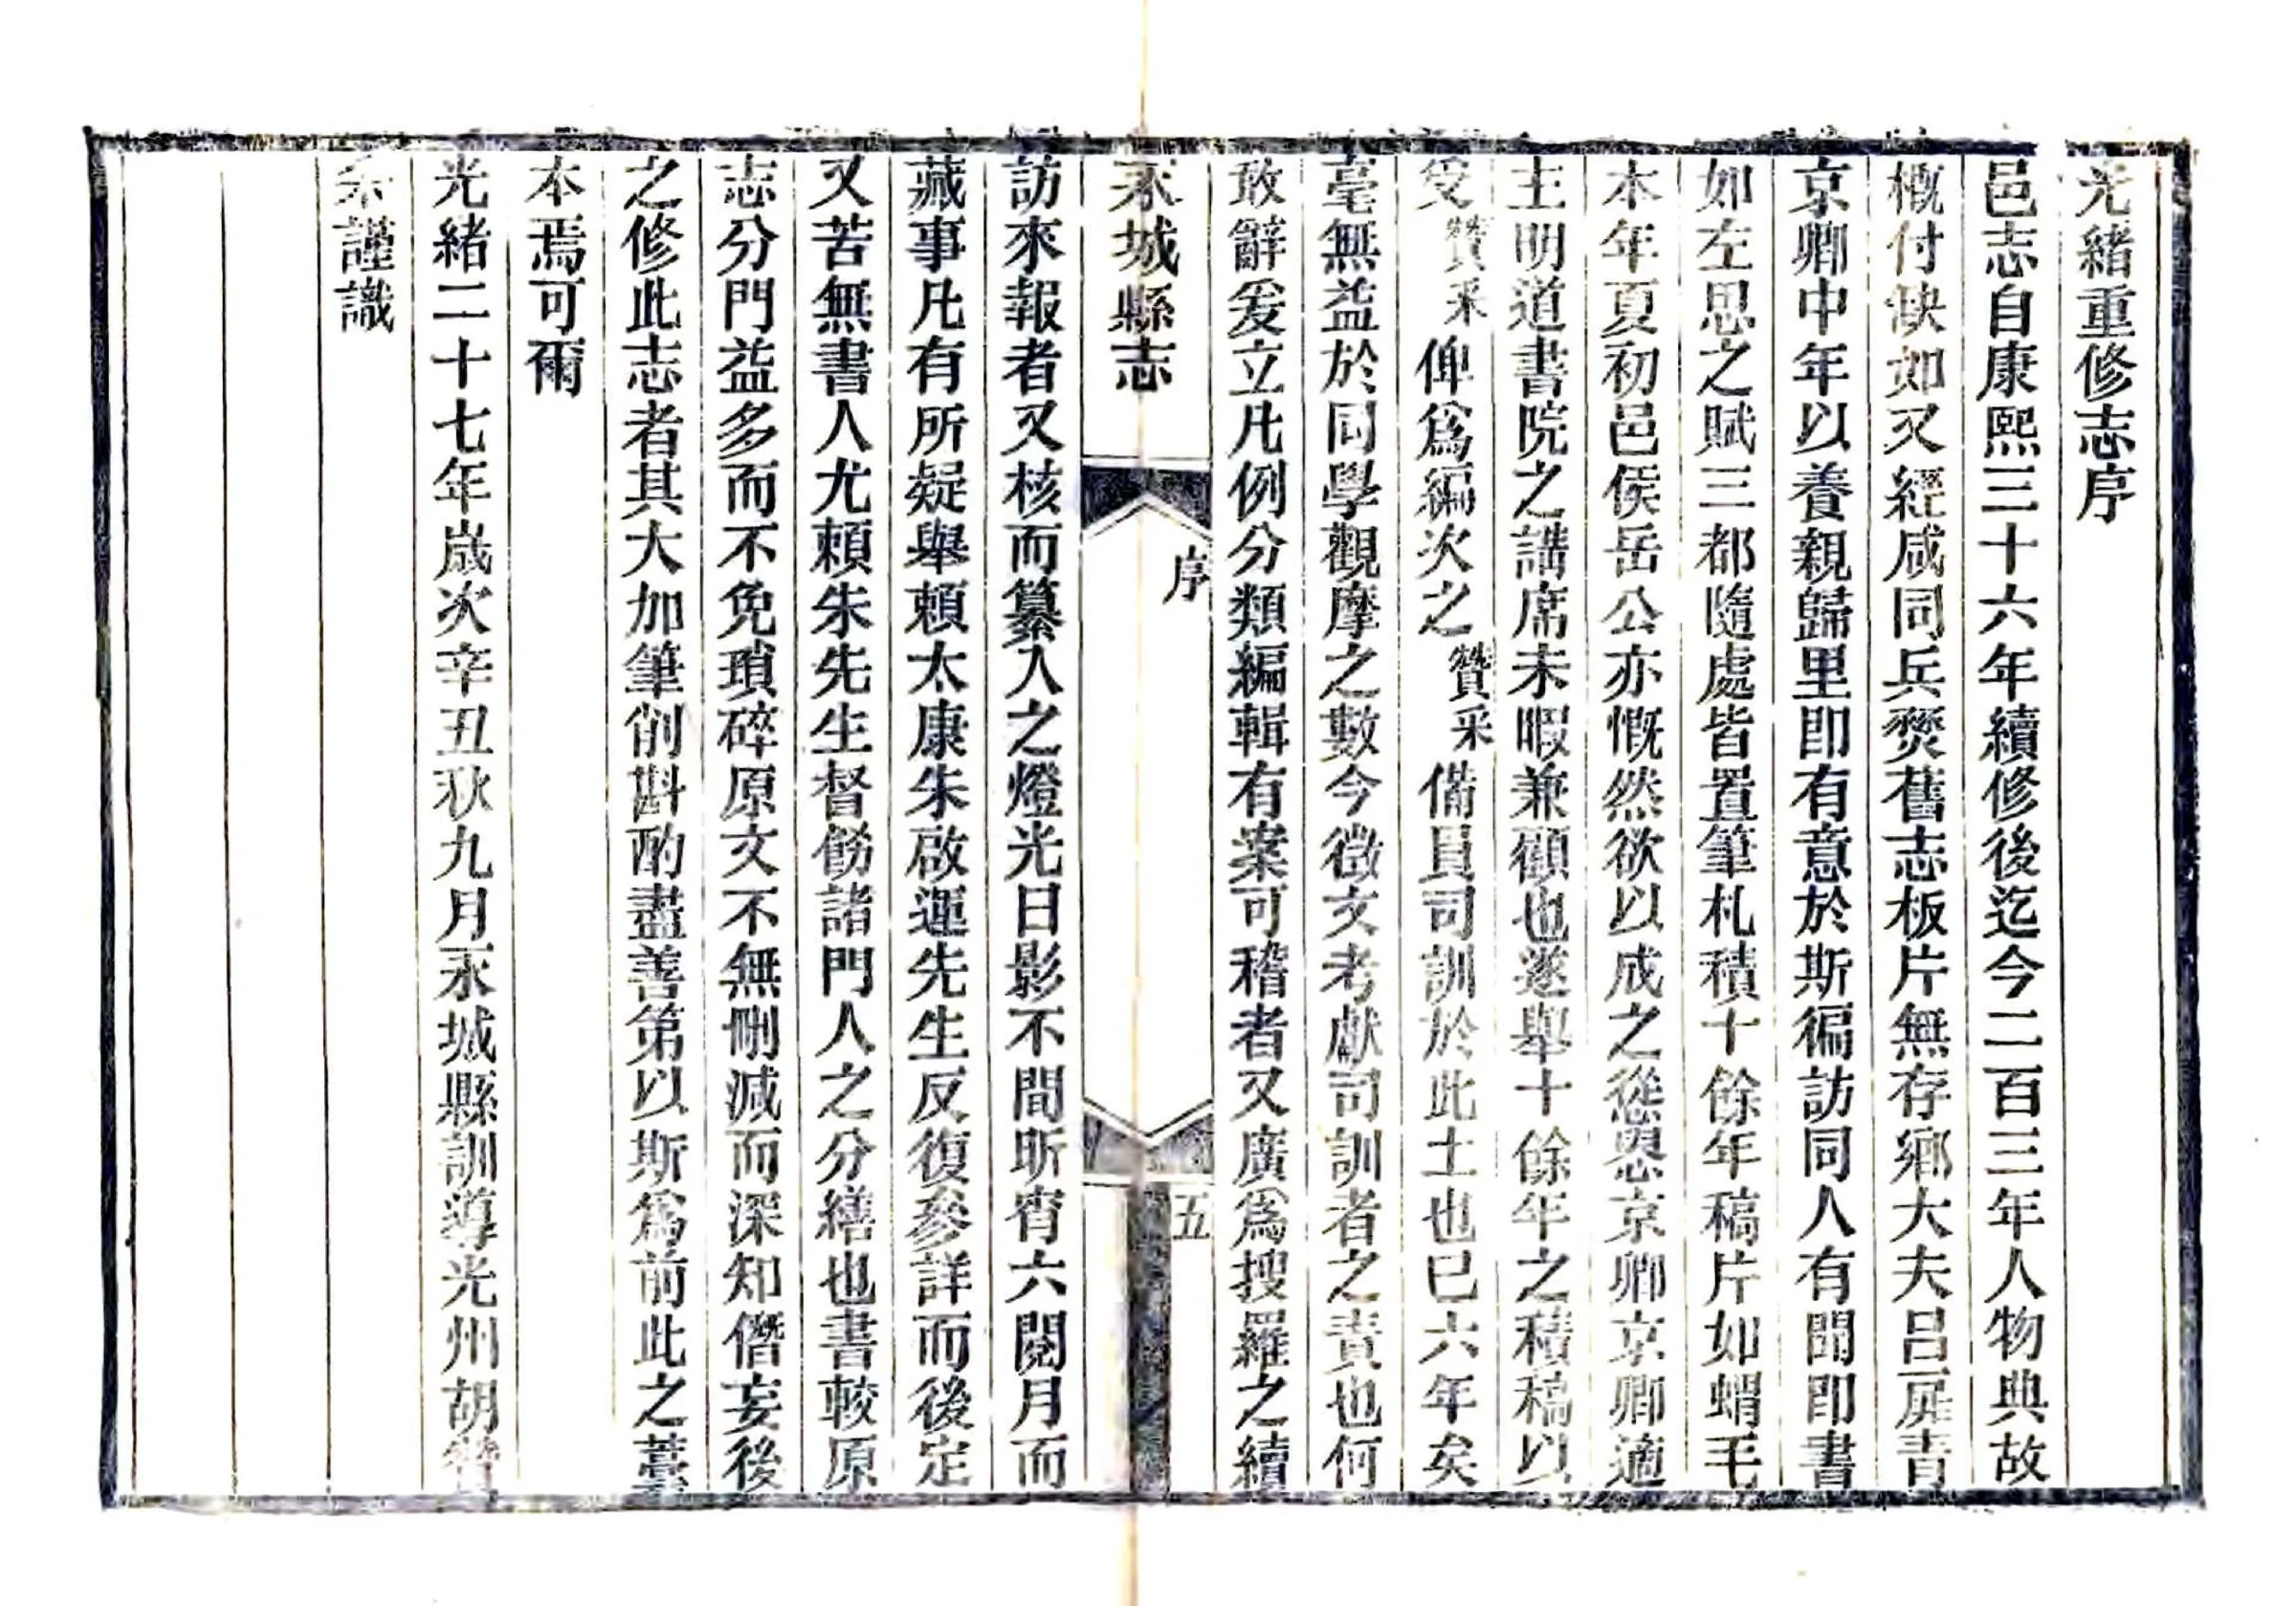 光緒重修志序
邑志自康熙三十六年續修後迄今二百三年人物典故
概付缺如又經咸同兵燹舊志板片無存鄉大夫呂扆青
京卿中年以養親歸里即有意於斯徧訪同人有聞即書
如左思之賦三都隨處皆置筆札積十餘年稿片如蝟毛
本年夏初邑侯岳公亦慨然欲以成之慫恿京卿京卿適
主明道書院之講席未暇兼顧也遂舉十餘年之積稿以
受贊采俾爲編次之贊采備員司訓於此土也已六年矣
毫無益於同學觀摩之數今徵文考獻司訓者之責也何
敢辭爰立凡例分類編輯有案可稽者又廣爲搜羅之續
永城縣志
序
五
訪來報者又核而纂入之燈光日影不間昕宵六閱月而
蕆事凡有所疑舉賴太康朱啟運先生反復參詳而後定
又苦無書人尤賴朱先生督飭諸門人之分繕也書較原
志分門益多而不免瑣碎原文不無刪減而深知僭妄後
之修此志者其大加筆削斟酌盡善第以斯爲前此之藁
本焉可爾
光緒二十七年歲次辛丑秋九月永城縣訓導光州胡贊
采謹識